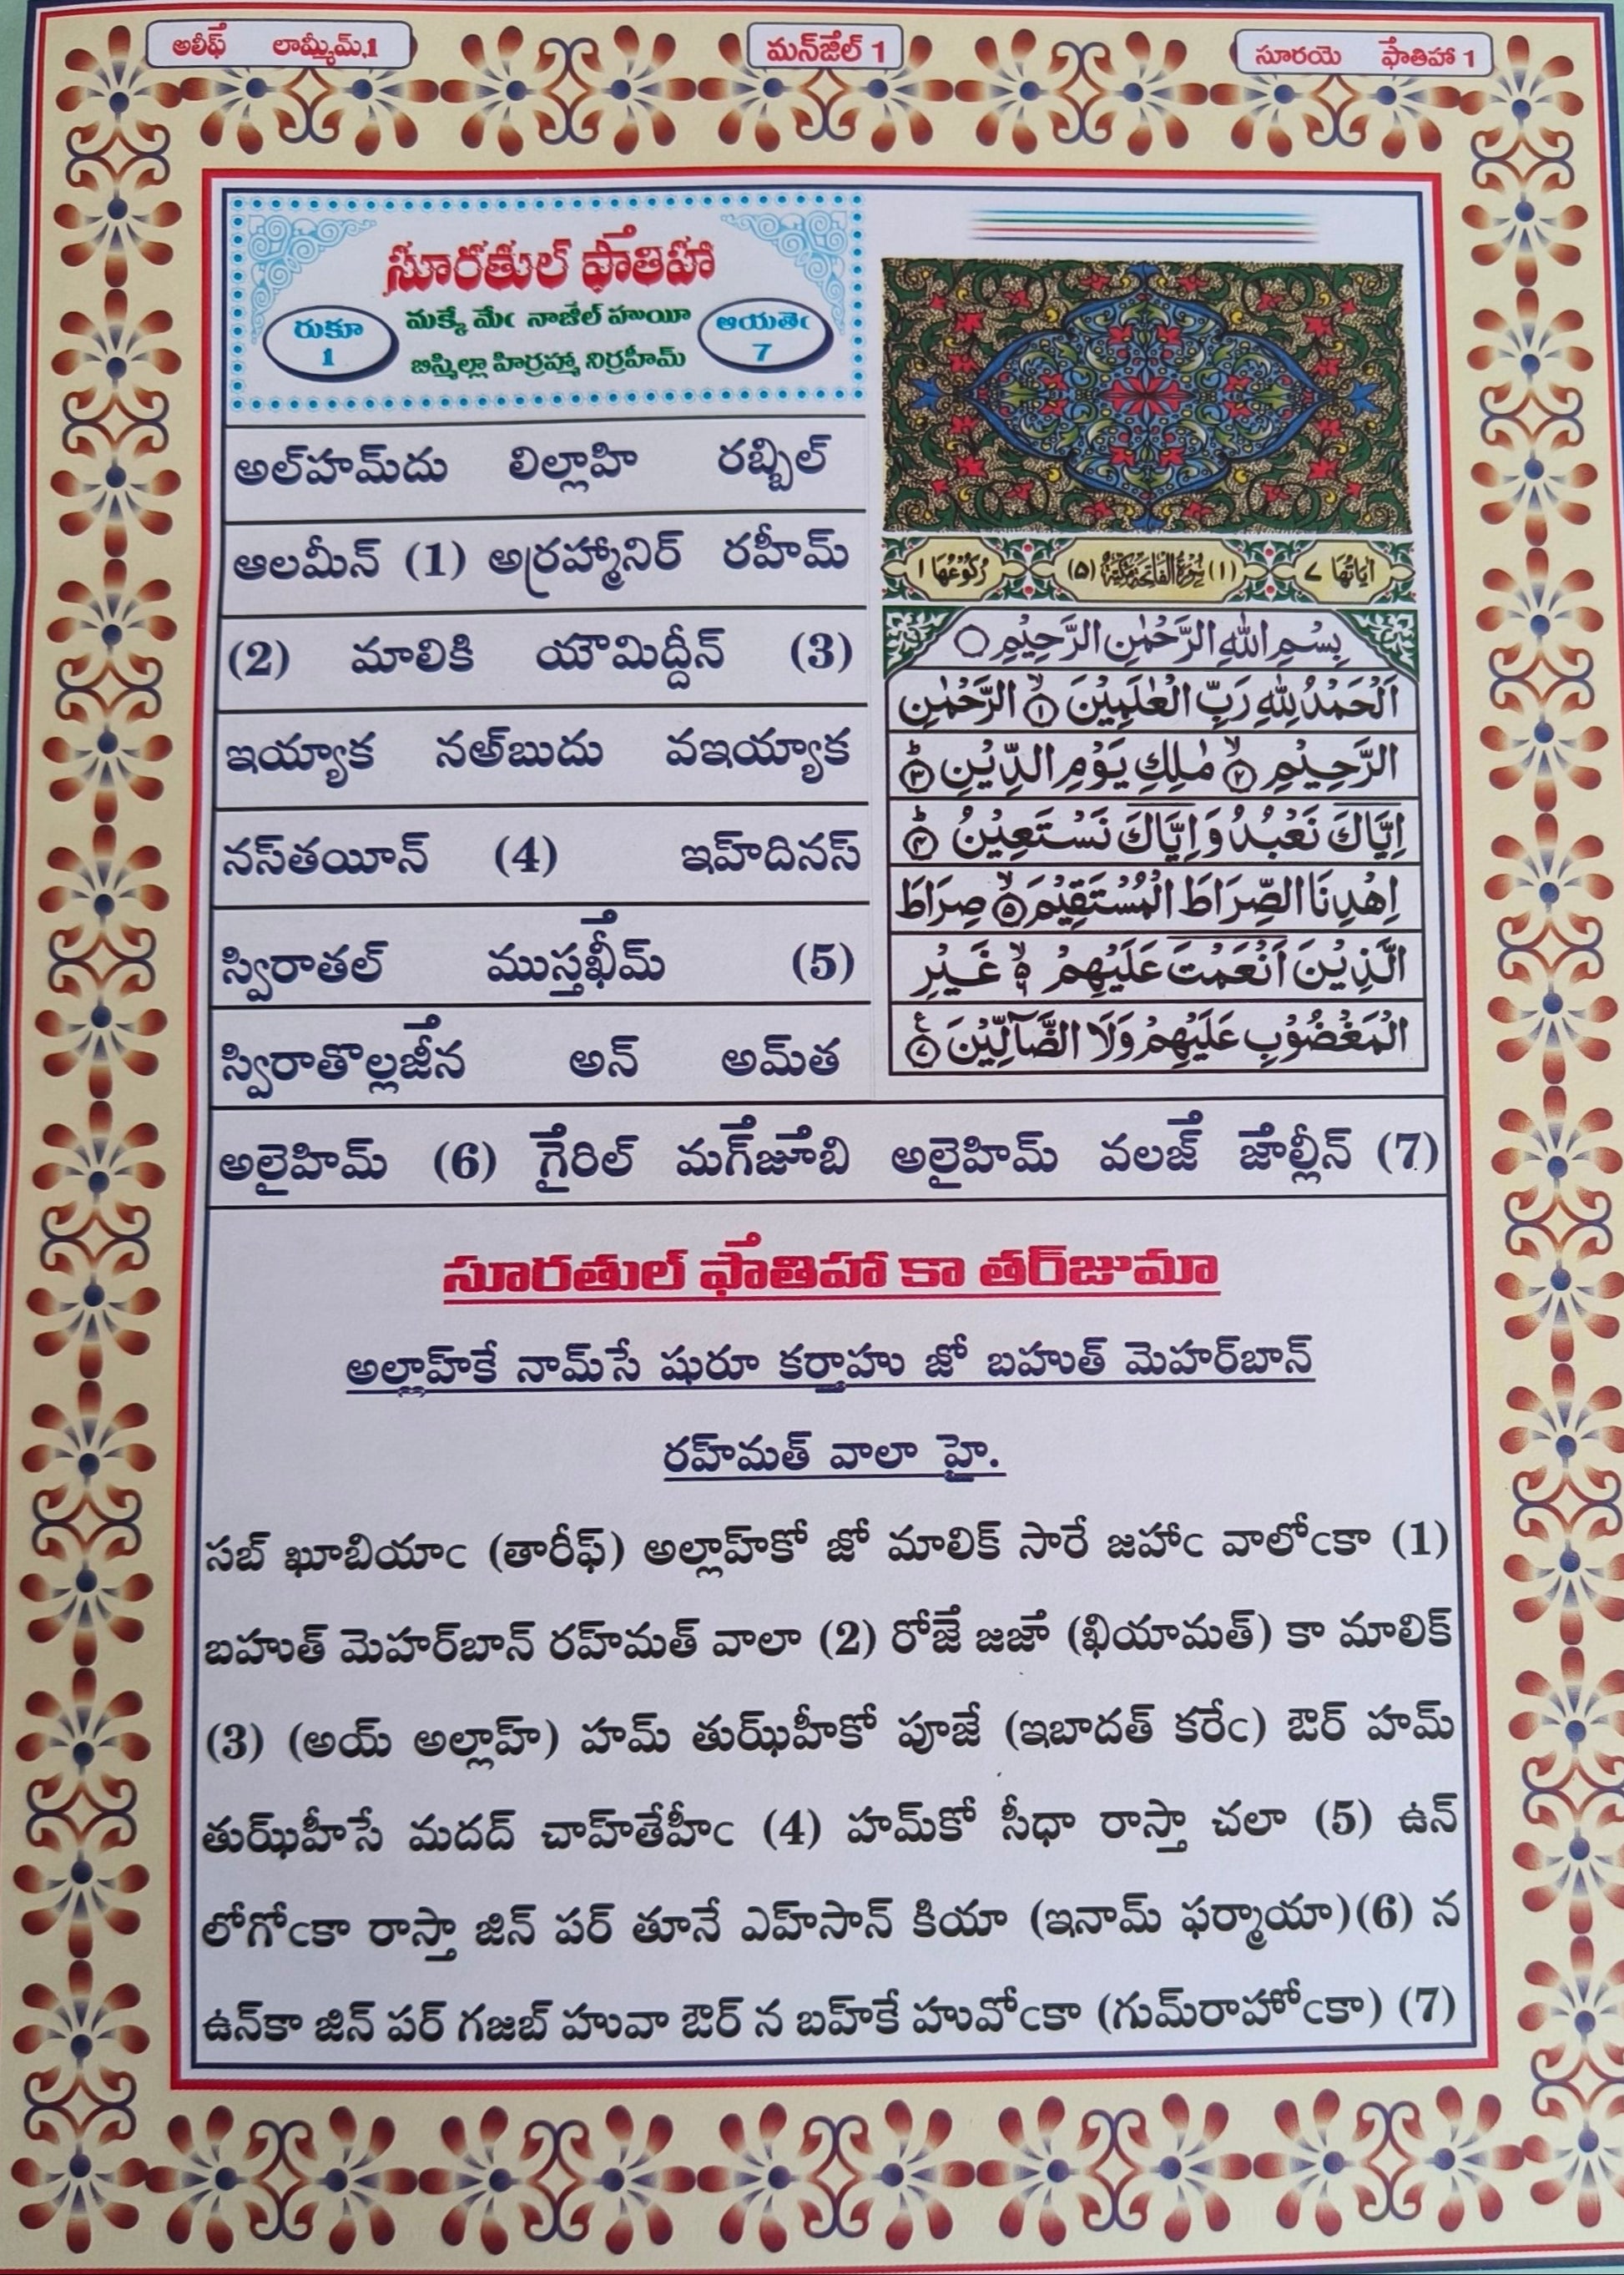 అలీఫ్ లామ్మీమ్,1
మన్‌జిల్ 1
సూరయె ఫాతిహా 1
సూరతుల్ ఫాతిహా
రుకూ
1
మక్కే మేఁ నాజిల్ హుయీ
బిస్మిల్లా హిర్రహ్మా నిర్రహీమ్
ఆయతెఁ
7
అల్‌హమ్‌దు లిల్లాహి రబ్బిల్
ఆలమీన్ (1) అర్రహ్మానిర్ రహీమ్
(2) మాలికి యౌమిద్దీన్ (3)
ఇయ్యాక నఅ్‌బుదు వఇయ్యాక
నస్‌తయీన్ (4) ఇహ్‌దినస్
స్విరాతల్ ముస్తఖీమ్ (5)
స్విరాతొల్లజీన అన్ అమ్‌త
اٰيَاتُهَا ٧
(١) سُوْرَةُ الْفَاتِحَةِ مَكِّيَّةٌ (٥)
رُكُوْعُهَا ١
بِسْمِ اللّٰهِ الرَّحْمٰنِ الرَّحِيْمِ ○
اَلْحَمْدُ لِلّٰهِ رَبِّ الْعٰلَمِيْنَ ۙ﴿١﴾ الرَّحْمٰنِ
الرَّحِيْمِ ۙ﴿٢﴾ مٰلِكِ يَوْمِ الدِّيْنِ ؕ﴿٣﴾
اِيَّاكَ نَعْبُدُ وَاِيَّاكَ نَسْتَعِيْنُ ؕ﴿٤﴾
اِهْدِنَا الصِّرَاطَ الْمُسْتَقِيْمَ ۙ﴿٥﴾ صِرَاطَ
الَّذِيْنَ اَنْعَمْتَ عَلَيْهِمْ ۙ۬ۦ غَيْرِ
الْمَغْضُوْبِ عَلَيْهِمْ وَلَا الضَّآلِّيْنَ ﴿٧﴾
అలైహిమ్ (6) గైరిల్ మగ్‌జూబి అలైహిమ్ వలజ్ జాల్లీన్ (7)
సూరతుల్ ఫాతిహా కా తర్‌జుమా
అల్లాహ్‌కే నామ్‌సే షురూ కర్తాహు జో బహుత్ మెహర్‌బాన్
రహ్‌మత్ వాలా హై.
సబ్ ఖూబియాఁ (తారీఫ్) అల్లాహ్‌కో జో మాలిక్ సారే జహాఁ వాలోఁకా (1)
బహుత్ మెహర్‌బాన్ రహ్‌మత్ వాలా (2) రోజే జజా (ఖియామత్) కా మాలిక్
(3) (అయ్ అల్లాహ్) హమ్ తుఝ్‌హీకో పూజే (ఇబాదత్ కరేఁ) ఔర్ హమ్
తుఝ్‌హీసే మదద్ చాహ్‌తేహీఁ (4) హమ్‌కో సీధా రాస్తా చలా (5) ఉన్
లోగోఁకా రాస్తా జిన్ పర్ తూనే ఎహ్‌సాన్ కియా (ఇనామ్ ఫర్మాయా)(6) న
ఉన్‌కా జిన్ పర్ గజబ్ హువా ఔర్ న బహ్‌కే హువోఁకా (గుమ్‌రాహోఁకా) (7)